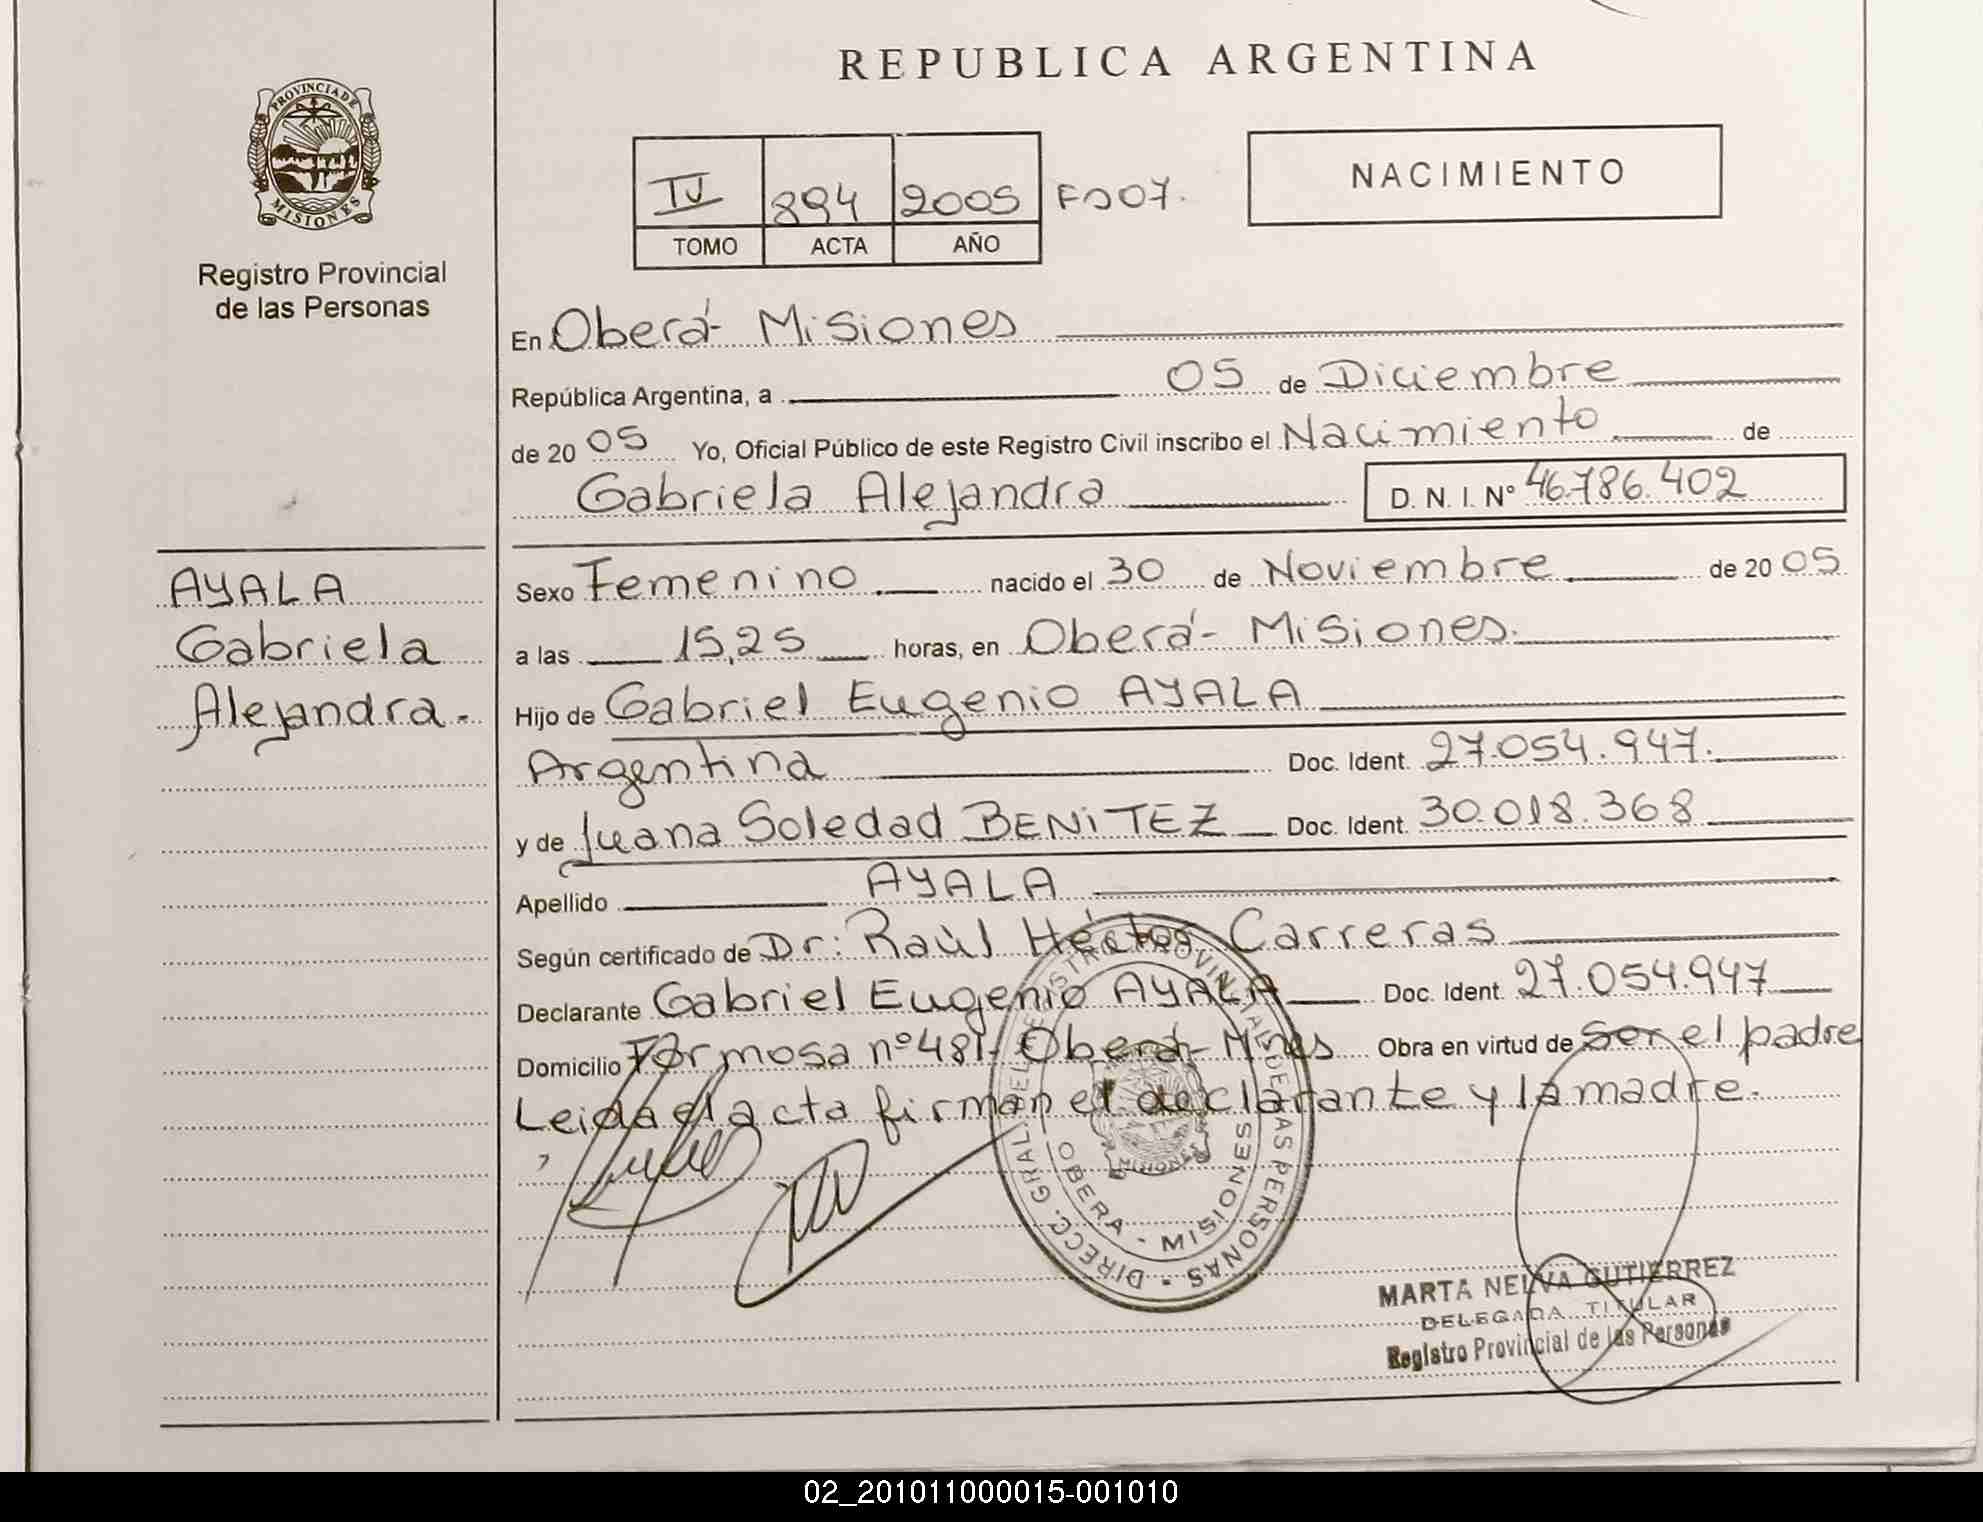 REPUBLICA ARGENTINA
PROVINCIA DE MISIONES
Registro Provincial
de las Personas
IV 894 2005 Fº 07.
TOMO ACTA AÑO
NACIMIENTO
En Oberá - Misiones
República Argentina, a 05 de Diciembre
de 20 05 Yo, Oficial Público de este Registro Civil inscribo el Nacimiento de
Gabriela Alejandra D. N. I. Nº 46.786.402
AYALA
Gabriela
Alejandra.
Sexo Femenino nacido el 30 de Noviembre de 20 05
a las 15,25 horas, en Oberá - Misiones.
Hijo de Gabriel Eugenio AYALA
Argentina Doc. Ident. 27.054.947.
y de Juana Soledad BENITEZ Doc. Ident. 30.018.368
Apellido AYALA
Según certificado de Dr: Raúl Héctor Carreras
Declarante Gabriel Eugenio AYALA Doc. Ident. 27.054.947
Domicilio Formosa nº 481- Oberá - Mnes Obra en virtud de ser el padre
Leida el acta firman el declarante y la madre.
DIRECC. GRAL. DEL REGISTRO PROVINCIAL DE LAS PERSONAS
OBERA - MISIONES
MARTA NELVA GUTIERREZ
DELEGADA TITULAR
Registro Provincial de las Personas
02_201011000015-001010